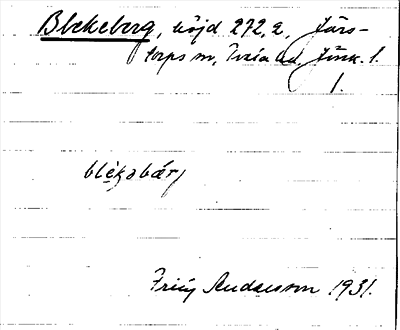 Blekeberg, höjd 272,2, Järs-
torps sn, Tveta hd, Jönk. l.
1.
blékabärj
Andersson 1931.